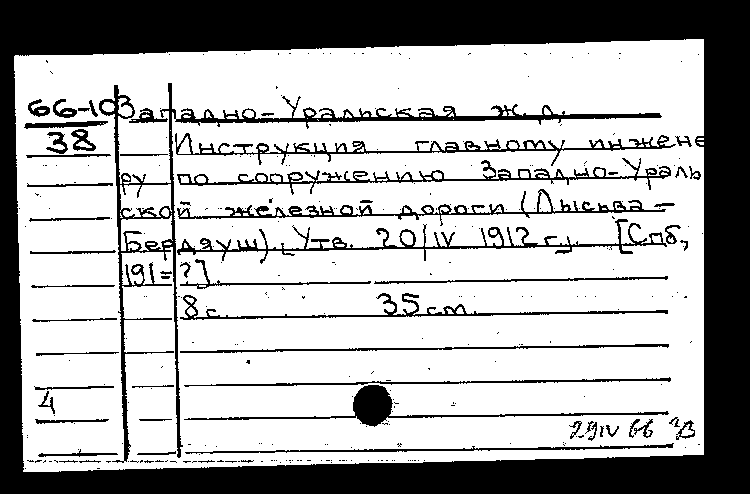 66-10 Западно-Уральская ж. д.
38 Инструкция главному инжене
ру по сооружению Западно-Ураль
ской железной дороги (Лысьва -
Бердяуш). [Утв. 20/IV 1912 г.]. [Спб,
191=?].
8 с. 35 см.
4
29 IV 66